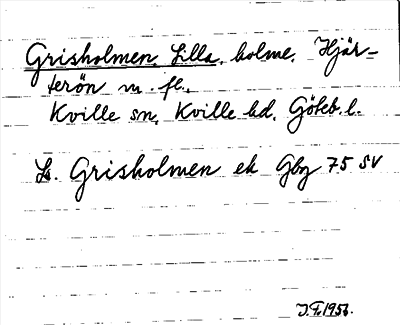 Grisholmen, Lilla, holme, Hjär-
terön m. fl.,
Kville sn, Kville hd, Göteb. l.
Ls. Grisholmen ek Gbg 75 SV
J.F. 1956.